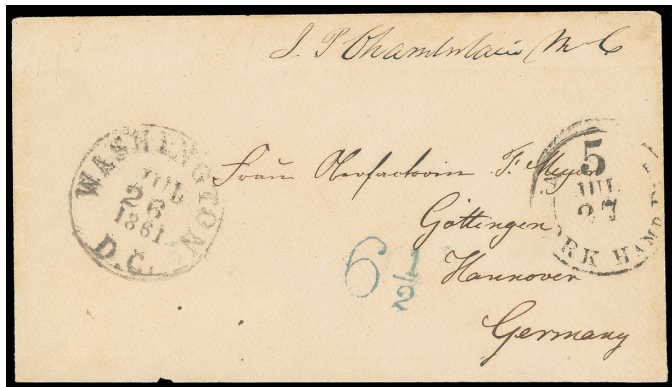 J. P. Chamberlain M C
WASHINGTON
JUL
26
1861
D.C.
5
JUL
27
RK HAMB
Frau Oberfactorin F. Meyer
Göttingen
Hannover
Germany
6 1/2